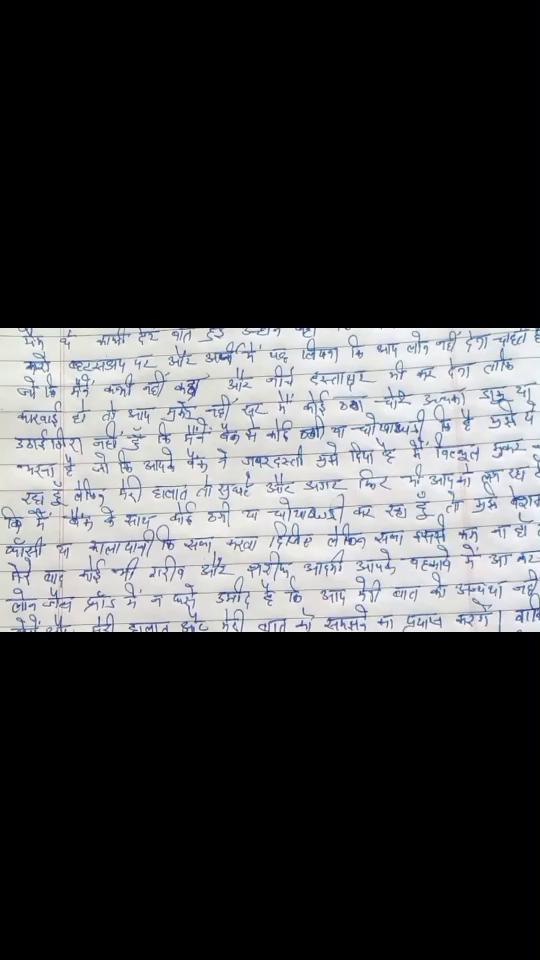 काफी देर बात हुई उन्होंने
मेरी व्हाट्सअप पर और अर्जी में यह लिखना कि आप लोन नहीं देना चाहते
जो कि मैंने कभी नहीं कहा और नीचे हस्ताक्षर भी कर देना ताकि
कारवाई हो तो आप मुकरे नहीं सर में कोई ठग चोर उच्चका डाकू या
उठाईगिरा नहीं हूँ कि मैंने बैंक से कोई ठगी या की है मुझे
भरना है जो कि आपके बैंक ने जबरदस्ती मुझे दिया है मैं बिल्कुल मुकर
रहा हूँ लेकिन मेरी हालात तो सुधरे और अगर फिर भी आपको लग रहा
कि मैं बैंक के साथ कोई ठगी या कर रहा हूँ तो मुझे बेशक
फाँसी या कालापानी कि सजा करवा दिजिए लेकिन सजा इससे कम ना हो
मेरे बाद कोई भी गरीब और शरीफ आदमी आपके बहकावे में आ कर
लोन जैसे फ्रॉड में न फसे उमीद है कि आप मेरी बात को अन्यथा नहीं
मेरी हालात और मेरी बात को समझने का प्रयास करेंगे।